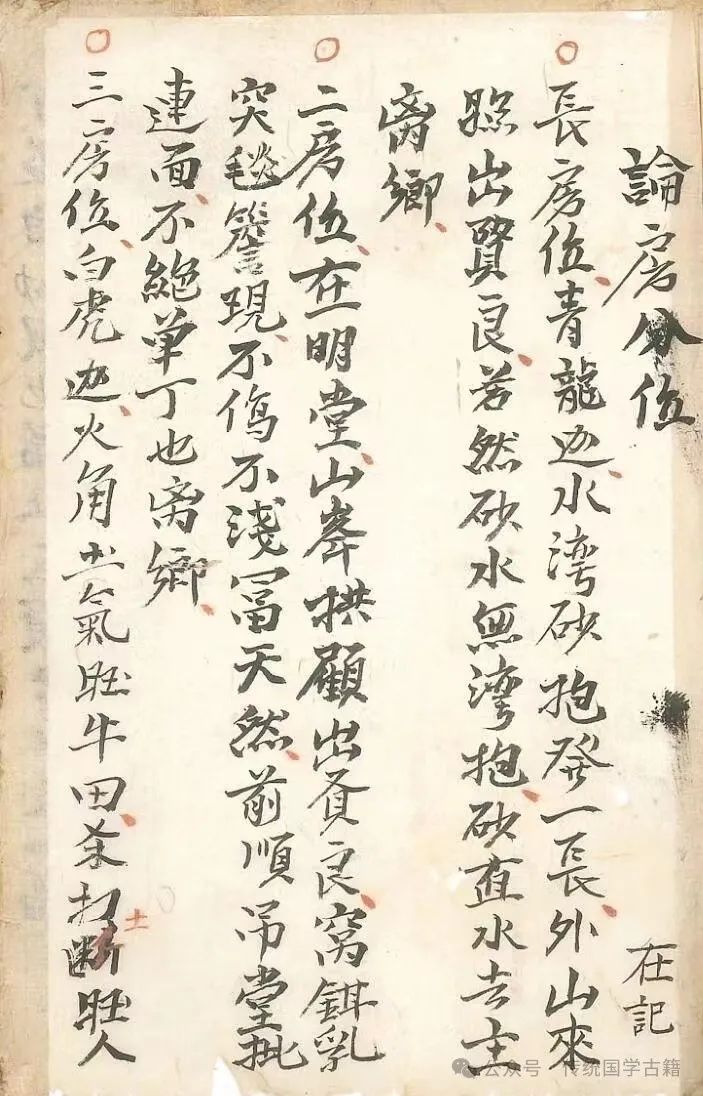 論房分位
在記
長房位青龍边水湾砂抱發一長外山來
照出賢良若然砂水無湾抱砂直水去主
离鄉
二房位在明堂山峯拱顧出賢良窩鉗乳
突毬簷現不傷不淺冨天然前順吊堂批
連面不絕单丁也离鄉
三房位白虎边火角土氣旺牛田杀打断旺人
土
公众号 传统国学古籍